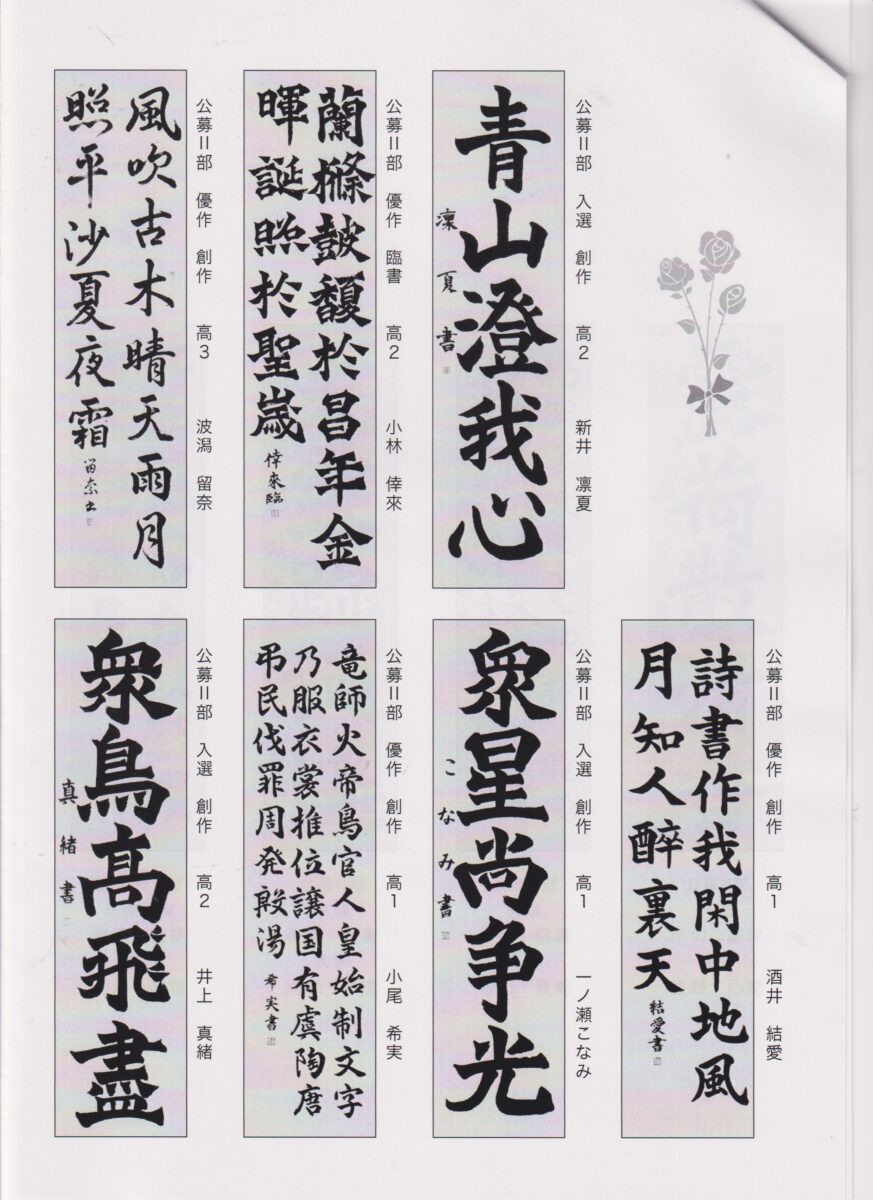 公募Ⅱ部 入選 創作 高2 新井 凛夏
青山澄我心
凜夏書
公募Ⅱ部 優作 臨書 高2 小林 倖來
蘭搽皷馥於昌年金
暉誕照於聖歳
倖來臨
公募Ⅱ部 優作 創作 高3 波潟 留奈
風吹古木晴天雨月
照平沙夏夜霜
留奈出
公募Ⅱ部 優作 創作 高1 酒井 結愛
詩書作我閑中地風
月知人醉裏天
結愛書
公募Ⅱ部 入選 創作 高1 一ノ瀬こなみ
衆星尚争光
こなみ書
公募Ⅱ部 優作 創作 高1 小尾 希実
竜師火帝鳥官人皇始制文字
乃服衣裳推位譲国有虞陶唐
弔民伐罪周発殷湯
希実書
公募Ⅱ部 入選 創作 高2 井上 真緒
衆鳥高飛盡
真緒書